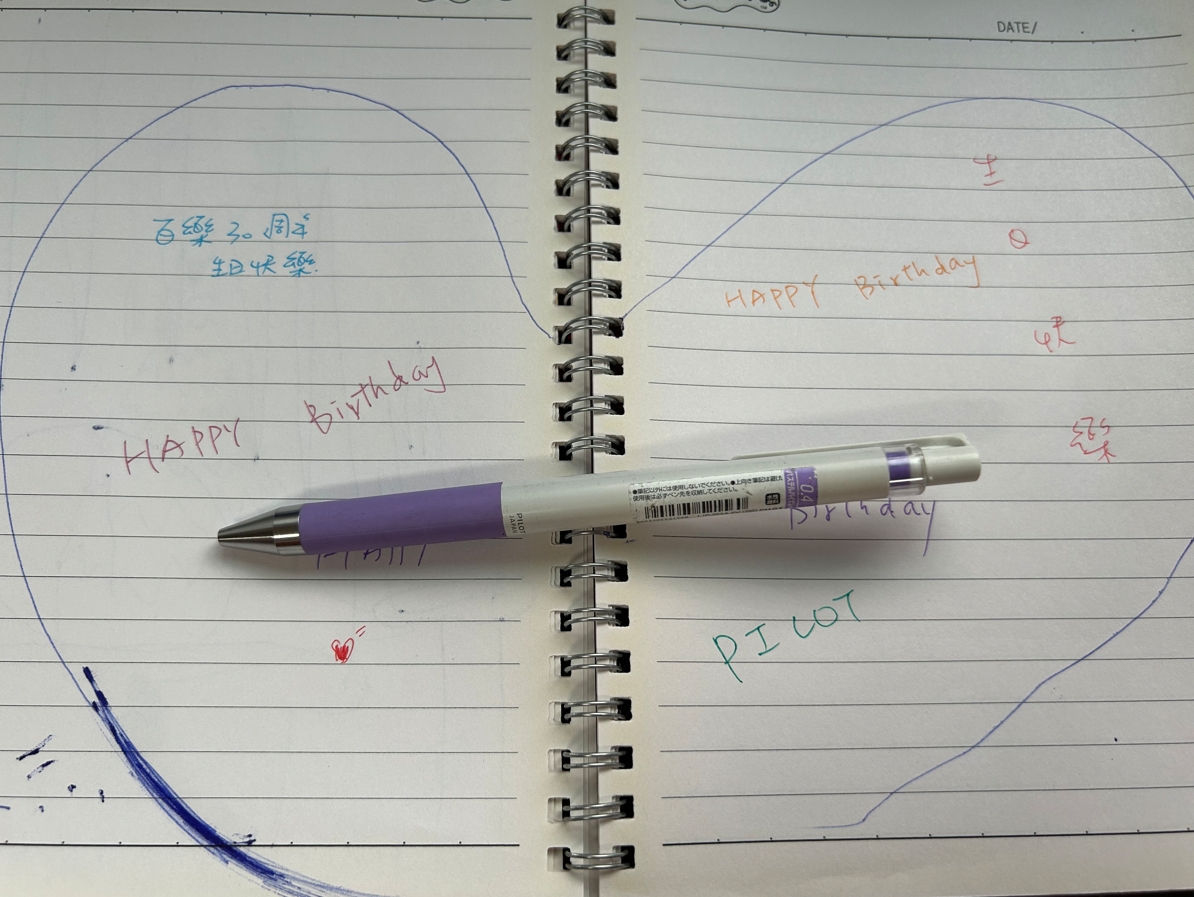 百樂30周年
生日快樂.
HAPPY Birthday
Happy
DATE/
生
日
HAPPY Birthday
快
樂
Birthday
PILOT
PILOT
JAPAN
●筆記以外には使用しないでください。●上向き筆記は避け
使用後は必ずペン先を収納してください。
0.4